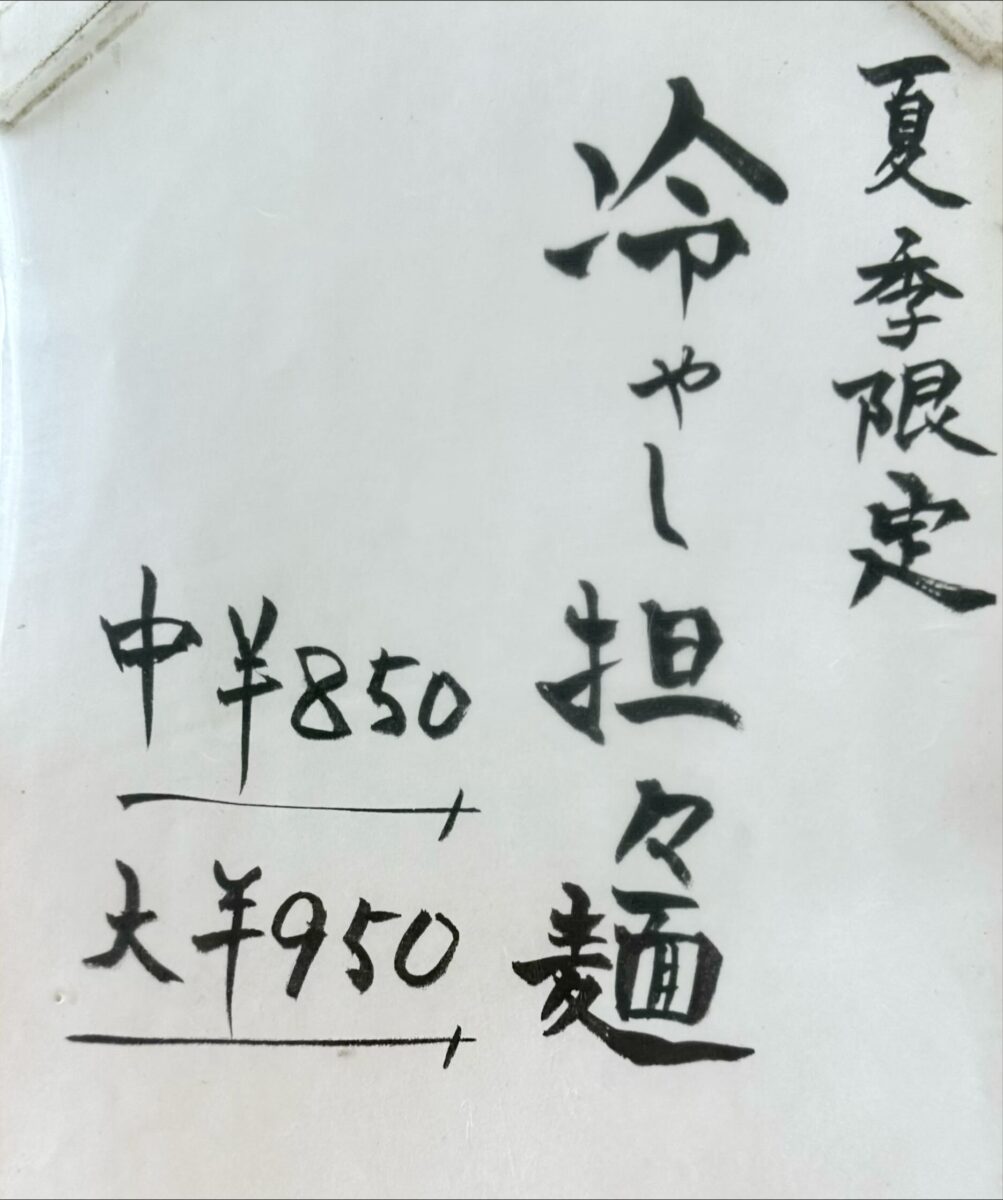 夏季限定
冷やし担々麺
中¥850
大¥950